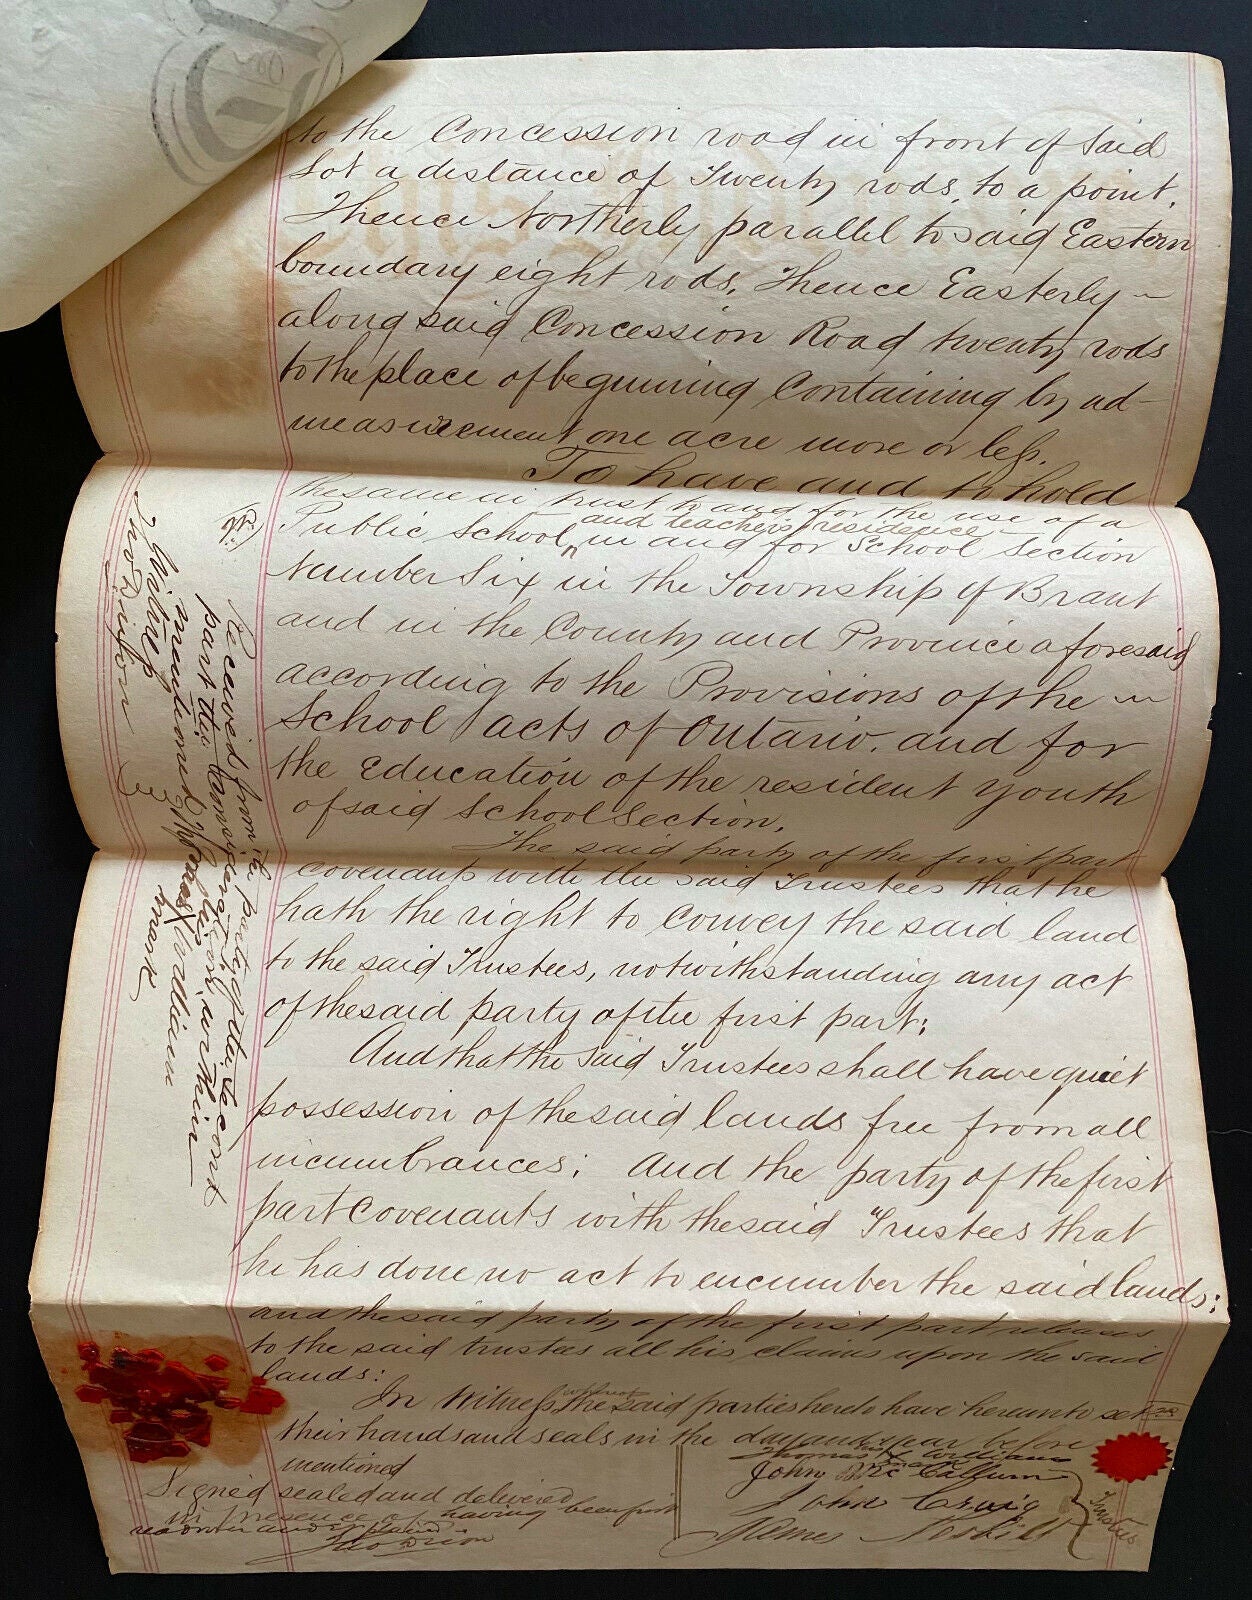 to the Concession road in front of Said
Lot a distance of Twenty rods, to a point.
Thence Northerly parallel to said Eastern
boundary eight rods. Thence Easterly
along said Concession Road twenty rods
to the place of beginning Containing by ad-
measurement one acre more or less.
To have and to hold
the same in trust to and for the use of a
and teachers residence
Public School in and for School Section
Number Six in the Township of Brant
and in the County and Province aforesaid
according to the Provisions of the
School acts of Ontario. and for
the Education of the resident youth
of said School Section.
The said party of the first part
covenants with the said Trustees that he
hath the right to Convey the said land
to the said Trustees, notwithstanding any act
of the said party of the first part;
And that the said Trustees shall have quiet
possession of the said lands free from all
incumbrances; And the party of the first
part Covenants with the said Trustees that
he has done no act to encumber the said lands;
and the said party of the first part releases
to the said trustees all his claims upon the said
lands:
In Witness whereof the said parties hereto have hereunto set
their hands and seals in the day and year before
mentioned
Signed sealed and delivered
in presence of having been first
read over and explained
Received from the party of the 2d cont
part the consideration within
mentioned Thomas X William
Witness mark
Thomas William
John McCallum
John Craig
James Nesbitt
Trustees